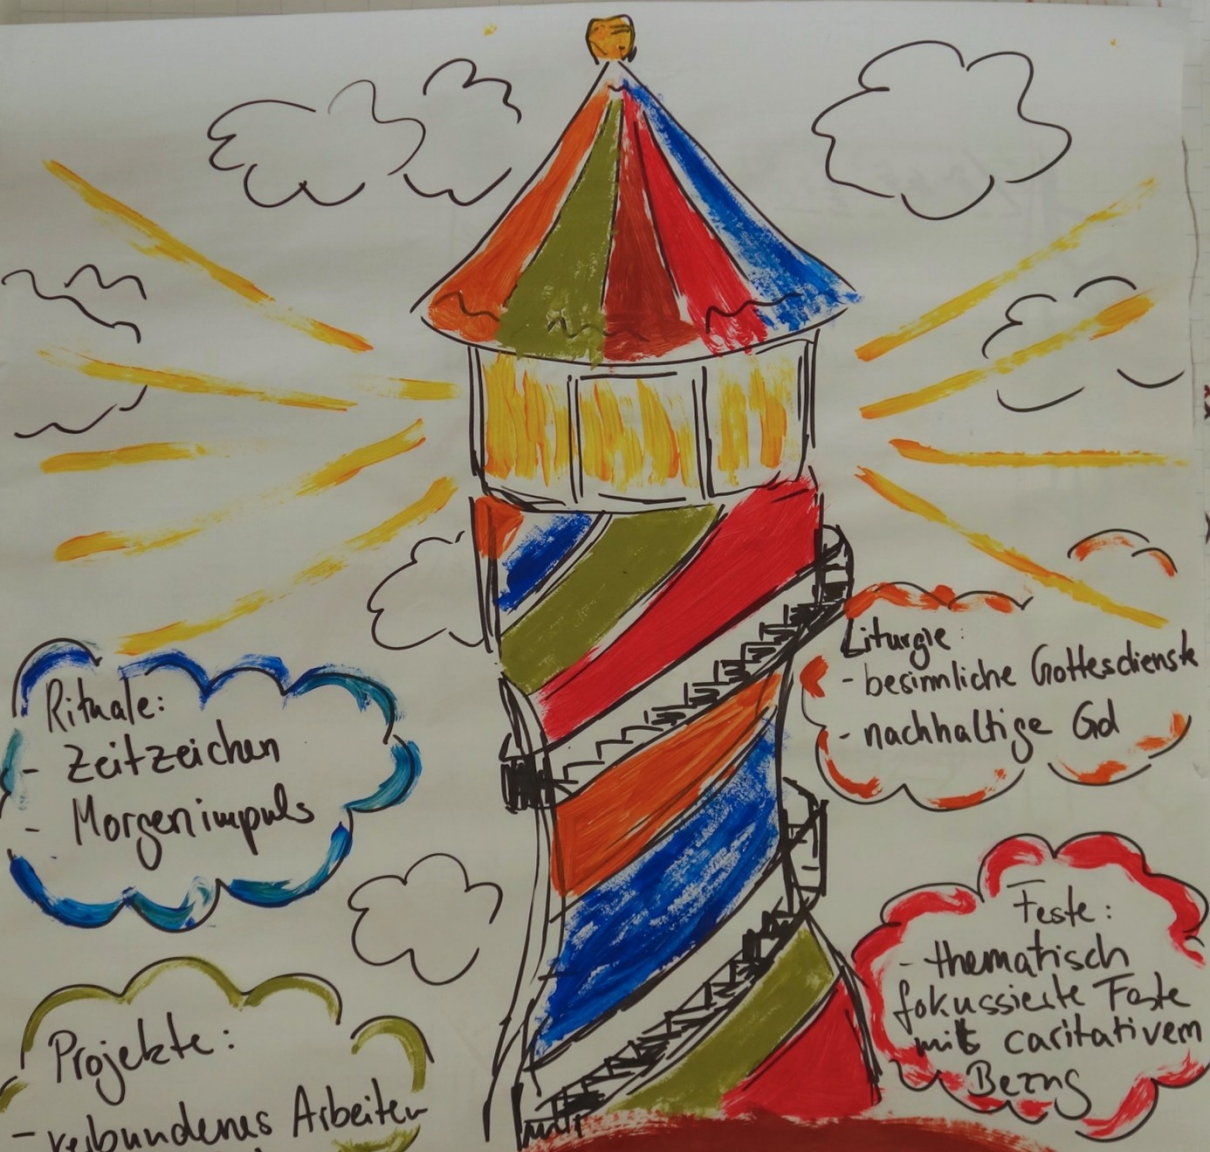 Rituale:
- Zeitzeichen
- Morgenimpuls
Projekte:
- verbundenes Arbeiten
Liturgie:
- besinnliche Gottesdienste
- nachhaltige Gd
Feste:
- thematisch
fokussierte Feste
mit caritativem
Bezug